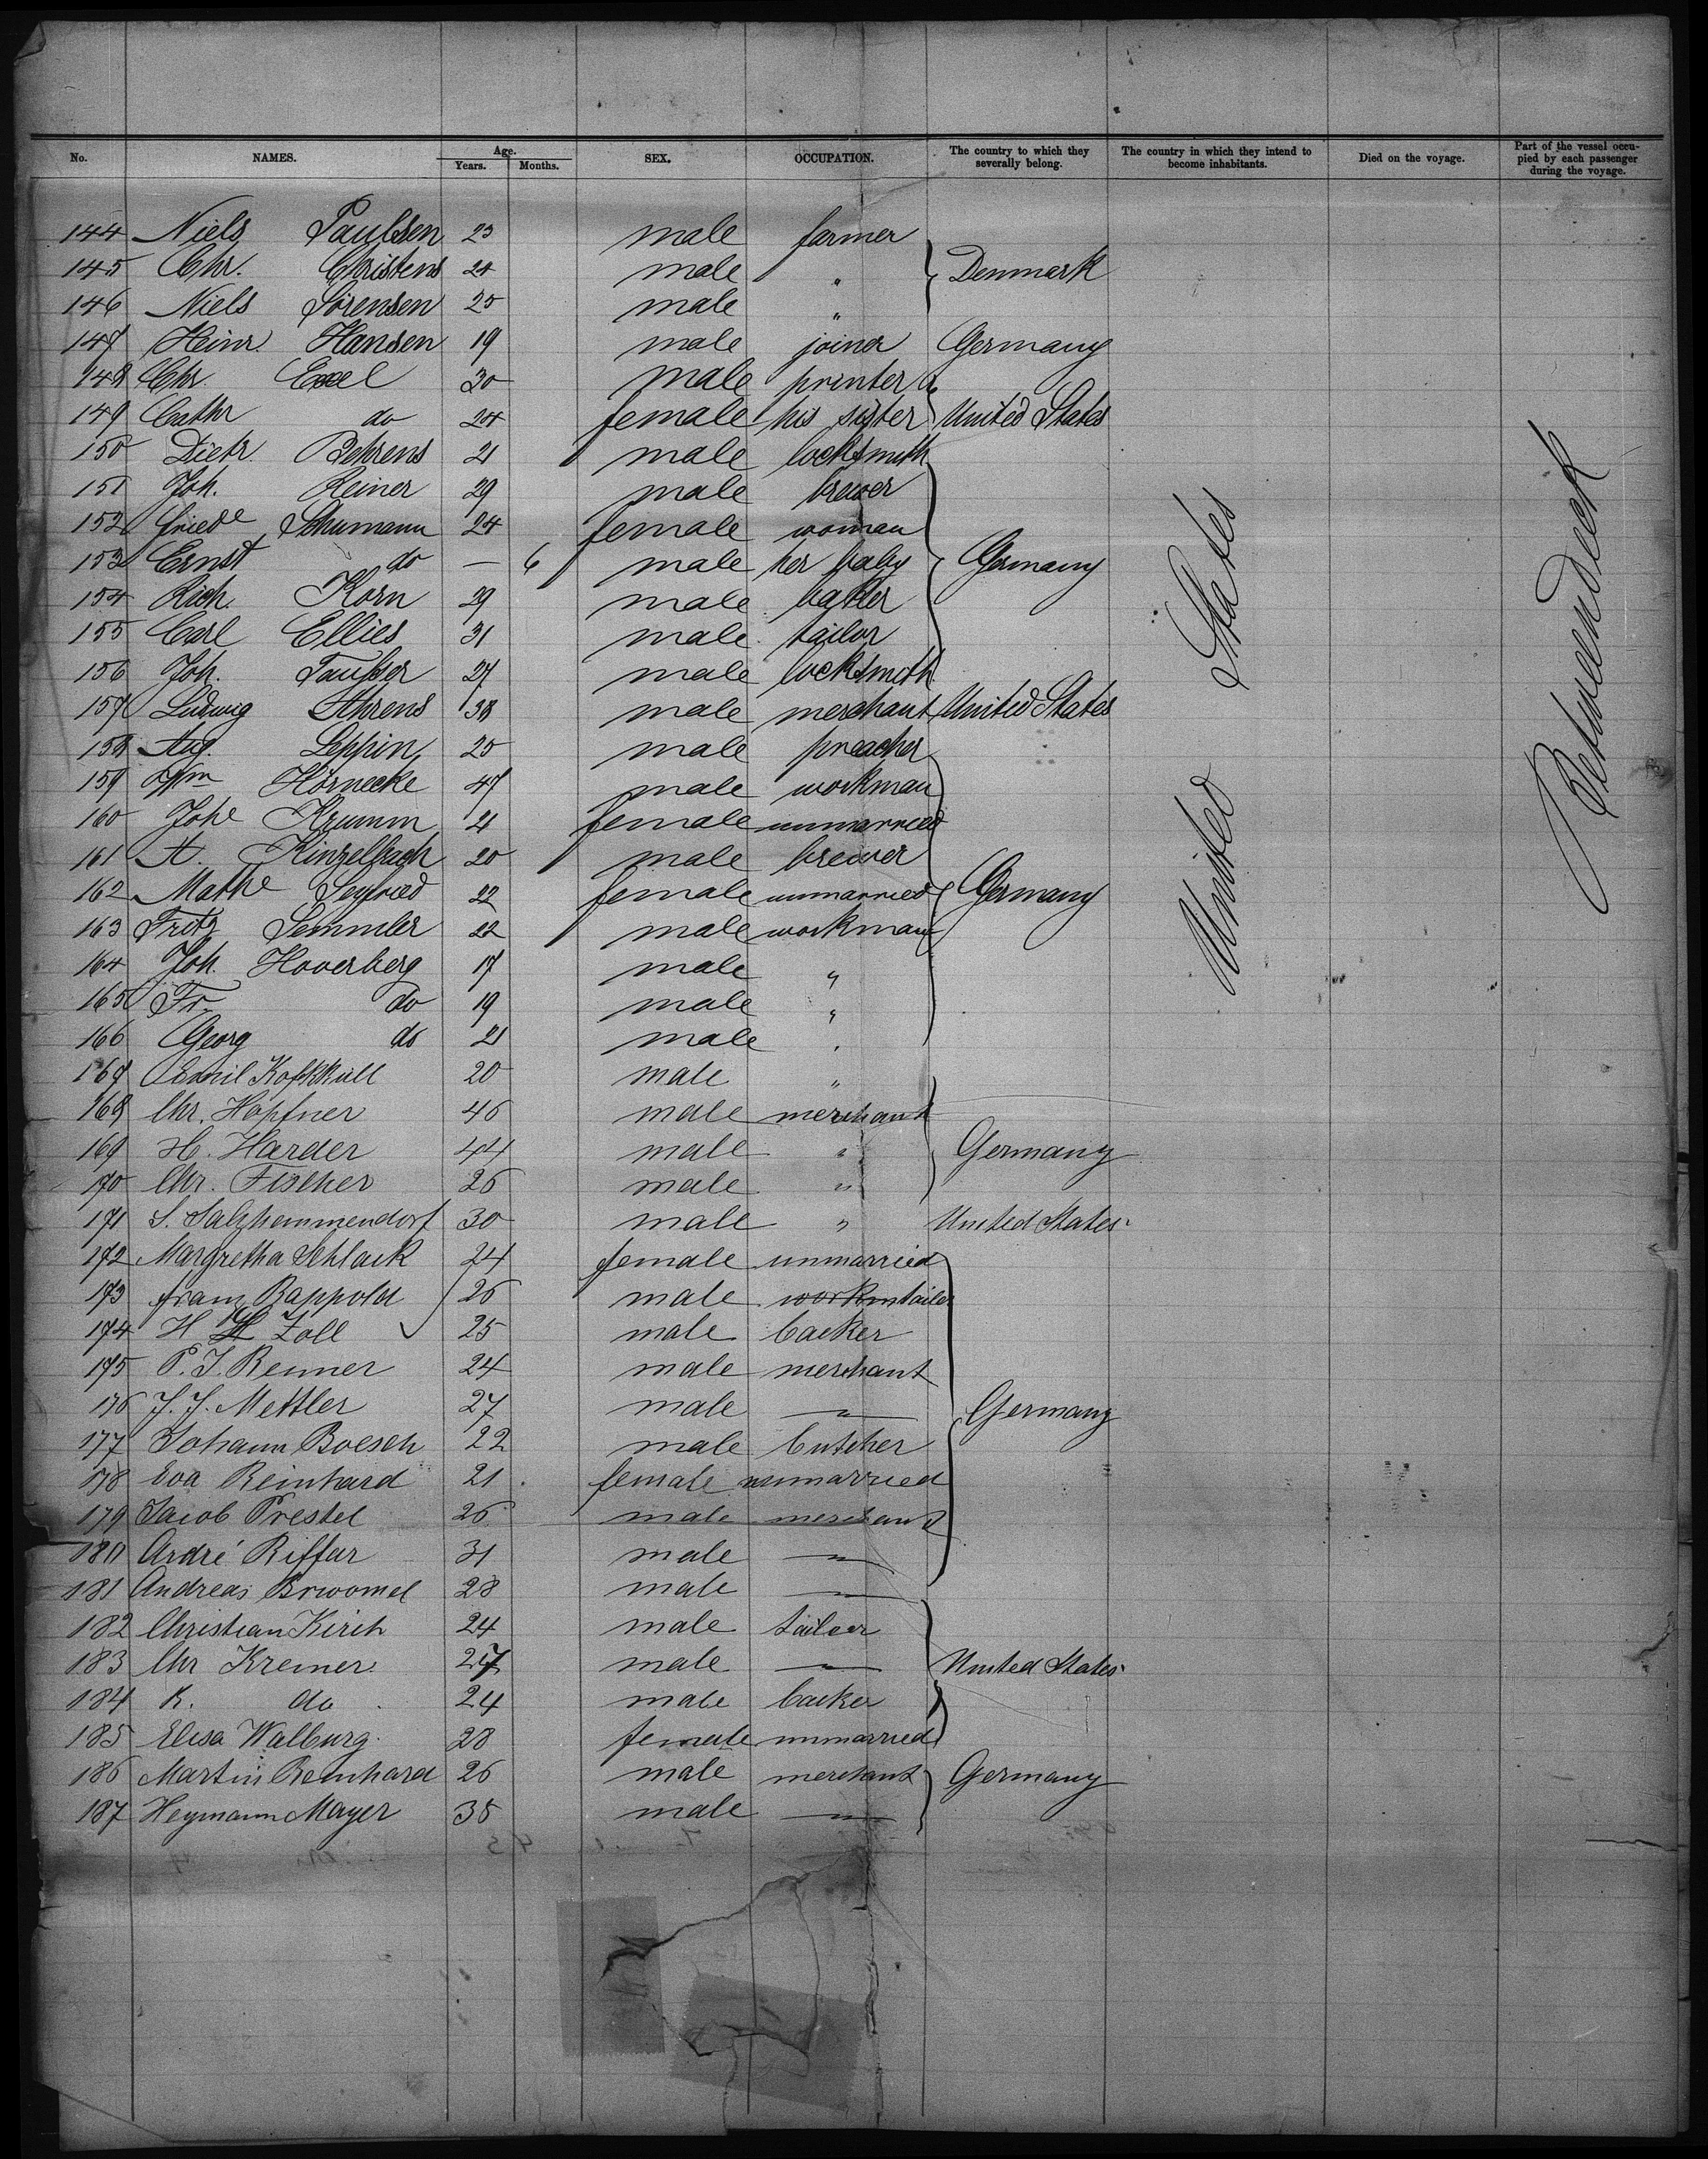 No. NAMES. Age. Years. Months. SEX. OCCUPATION. The country to which they severally belong. The country in which they intend to become inhabitants. Died on the voyage. Part of the vessel occupied by each passenger during the voyage.
144 Niels Paulsen 23 male farmer
145 Chr. Christens 24 male " Denmark
146 Niels Sörensen 25 male "
147 Heinr. Hansen 19 male joiner Germany
148 Chr. Exel 30 male printer
149 Cathr do 24 female his sister United States
150 Dietr. Behrens 21 male locksmith
151 Joh. Reiner 29 male brewer
152 Friede Schumann 24 female woman
153 Ernst do — 6 male her baby Germany
154 Rich. Korn 29 male baker
155 Carl Ellies 31 male tailor
156 Joh. 27 male locksmith
157 Ludwig Ahrens 38 male merchant United States
158 Aug. Leppin 25 male preacher
159 Wm Hörnecke 47 male workman
160 Johe Krumm 21 female unmarried
161 A. Kinzelbach 20 male brewer
162 Mathe Segfried 22 female unmarried Germany
163 Fritz Semmler 22 male workman
164 Joh. Hoverberg 17 male "
165 Fr. do 19 male "
166 Georg do 21 male "
167 Emil 20 male "
168 Chr. Höpfner 46 male merchant
169 H. Harder 44 male " Germany
170 Chr. Fischer 26 male "
171 S. Salzhemmendorf 30 male " United States
172 Margretha Schlack 24 female unmarried
173 Franz Rappold 26 male workm tailor
174 H Zoll 25 male backer
175 P. J. Renner 24 male merchant
176 J. J. Mettler 27 male " Germany
177 Johann Boesch 22 male butcher
178 Eva Reinhard 21 female unmarried
179 Jacob Prestel 26 male merchant
180 André Riffar 31 male "
181 Andreas 28 male "
182 Christian Kirch 24 male tailor
183 Chr Kremer 27 male " United States
184 K. do 24 male backer
185 Elisa Walburg 28 female unmarried
186 Martin Reinhard 26 male merchant Germany
187 Heymann Mayer 35 male "
United States
Betweendeck